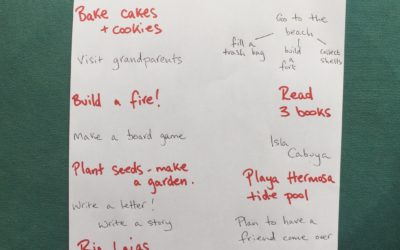 Bake cakes
+ cookies
Visit grandparents
Build a fire!
Make a board game
Plant seeds - make
a garden.
Write a letter!
Write a story
Big Lajas
Go to the
beach
fill a
trash bag
build
a
fort
collect
shells
Read
3 books
Isla
Cabuya
Playa Hermosa
tide pool
Plan to have a
friend come over